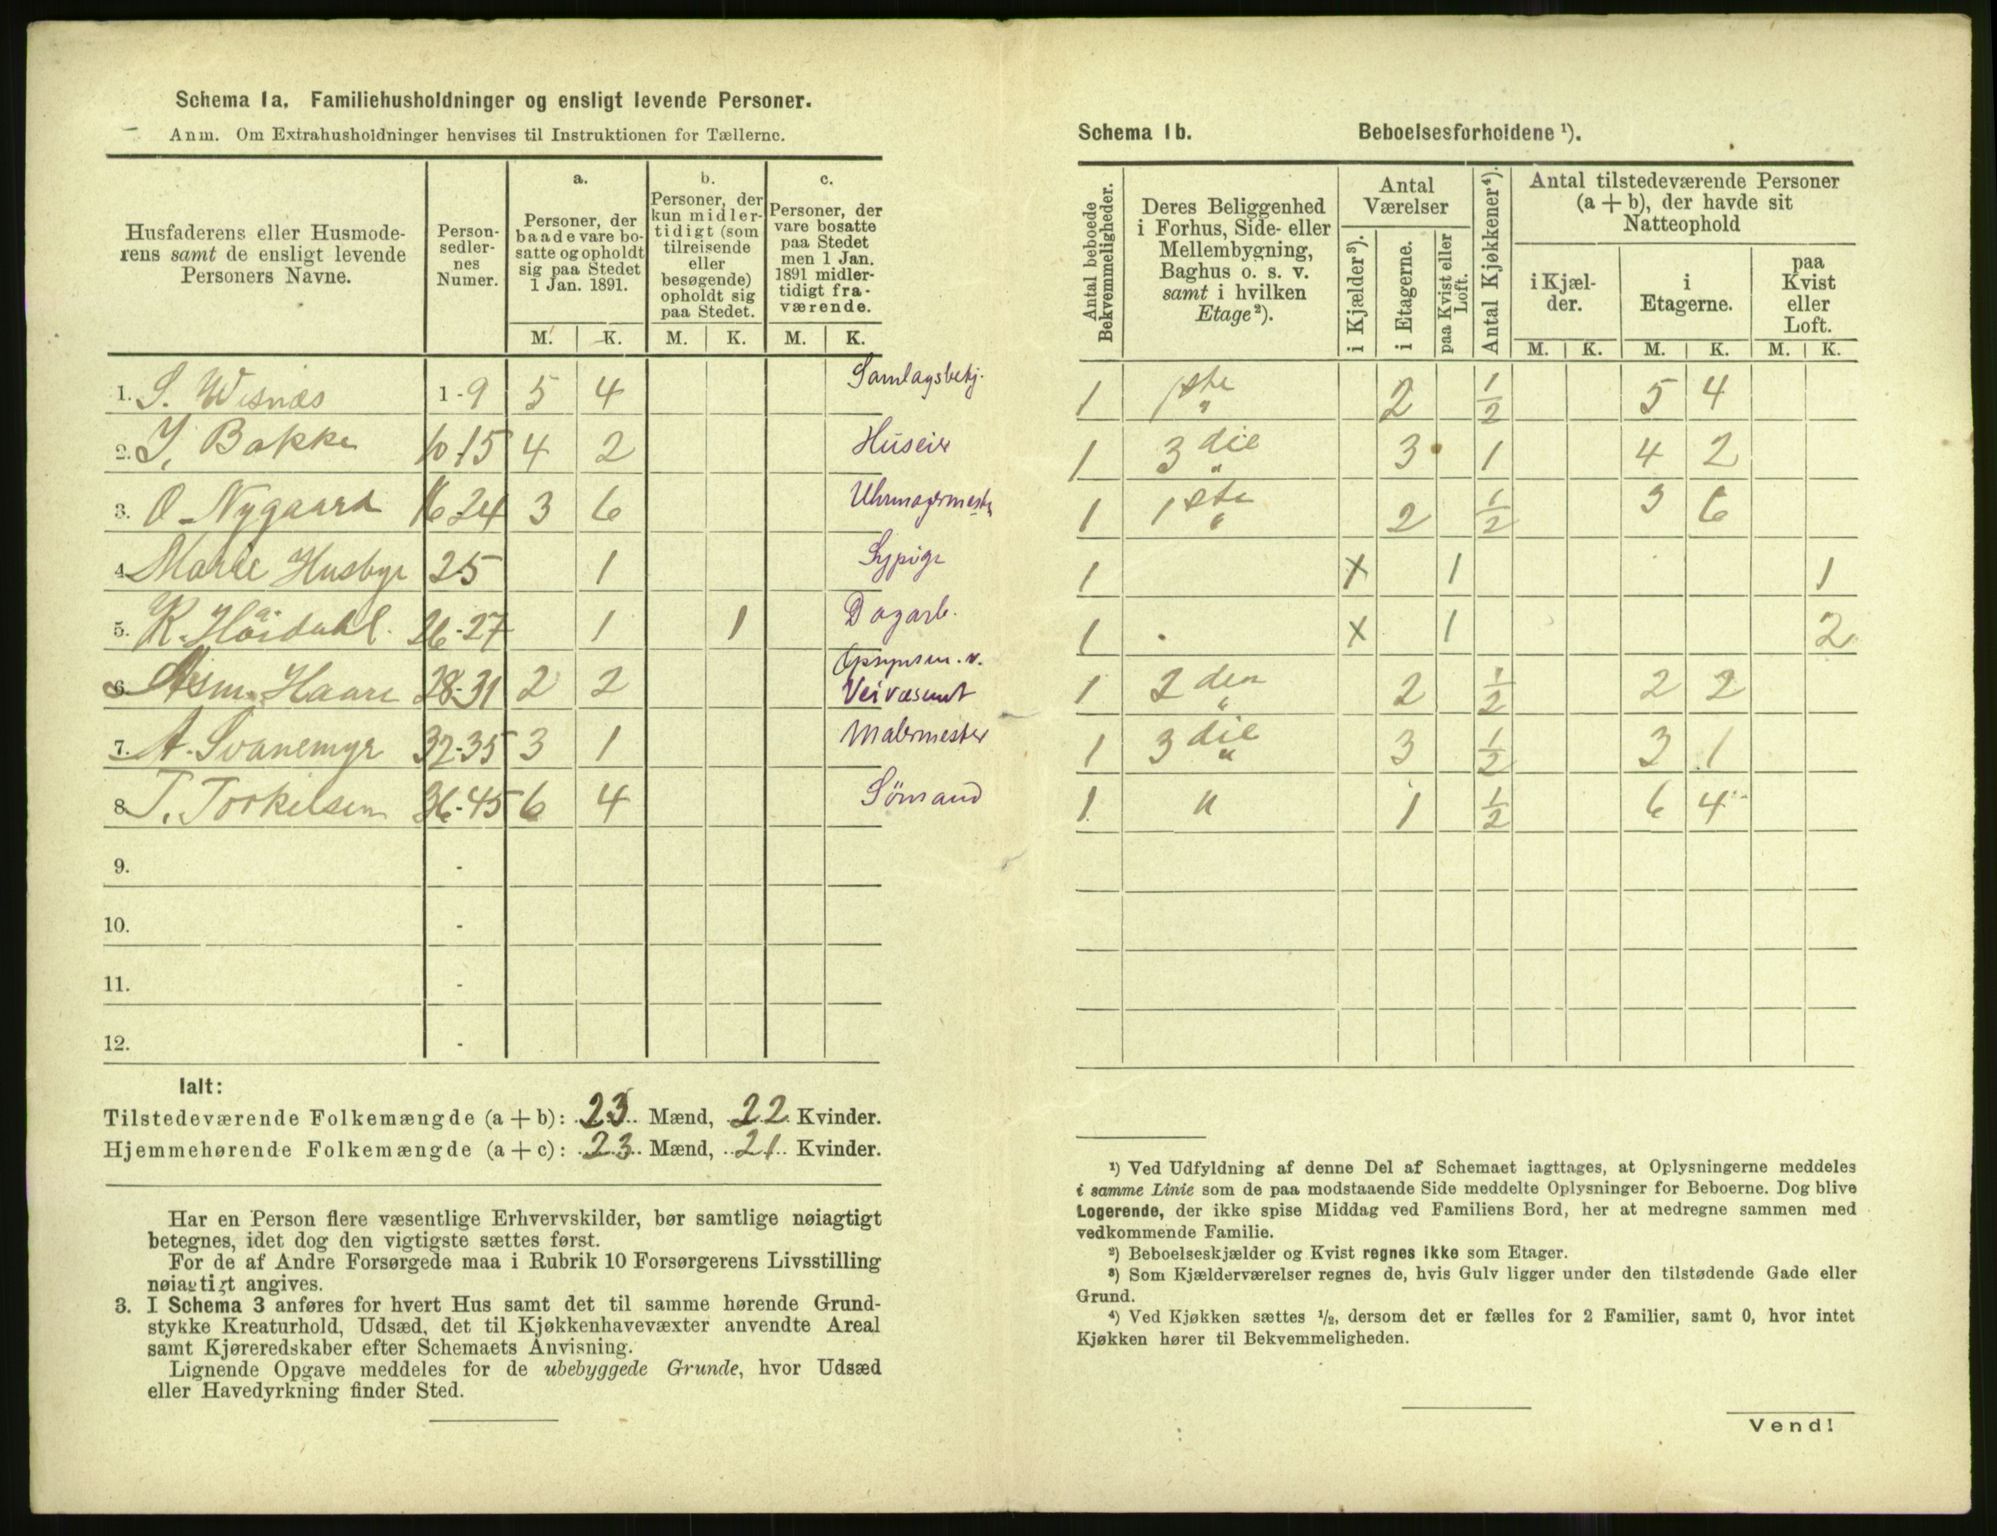 Schema 1a. Familiehusholdninger og ensligt levende Personer.
Anm. Om Extrahusholdninger henvises til Instruktionen for Tællerne.
Husfaderens eller Husmoderens samt de ensligt levende Personers Navne.
Person-sedlernes Numer.
a. Personer, der baade vare bosatte og opholdt sig paa Stedet 1 Jan. 1891.
b. Personer, der kun midlertidigt (som tilreisende eller besøgende) opholdt sig paa Stedet.
c. Personer, der vare bosatte paa Stedet men 1 Jan. 1891 midlertidigt fraværende.
M. K. M. K. M. K.
1. S. Wisnæs 1-9 5 4 Samlagsbetj.
2. I. Bakke 10-15 4 2 Huseier
3. O. Nygaard 16-24 3 6 Uhrmagermester
4. Marie Husbye 25 1 Sypige
5. K. Høidahl. 26-27 1 1 Dagarb.
6. Asm. Haare 28-31 2 2 Opsynsm. v. Veivæsent
7. A. Svanemyr 32-35 3 1 Malermester
8. T. Torkelsen 36-45 6 4 Sömand
9. -
10. -
11. -
12. -
Ialt:
Tilstedeværende Folkemængde (a+b): 23 Mænd, 22 Kvinder.
Hjemmehørende Folkemængde (a+c): 23 Mænd, 21 Kvinder.
Har en Person flere væsentlige Erhvervskilder, bør samtlige nøiagtigt
betegnes, idet dog den vigtigste sættes først.
For de af Andre Forsørgede maa i Rubrik 10 Forsørgerens Livsstilling
nøiagtigt angives.
3. I Schema 3 anføres for hvert Hus samt det til samme hørende Grund-
stykke Kreaturhold, Udsæd, det til Kjøkkenhavevæxter anvendte Areal
samt Kjøreredskaber efter Schemaets Anvisning.
Lignende Opgave meddeles for de ubebyggede Grunde, hvor Udsæd
eller Havedyrkning finder Sted.
Schema 1b. Beboelsesforholdene ¹).
Antal beboede Bekvemmeligheder.
Deres Beliggenhed i Forhus, Side- eller Mellembygning, Baghus o. s. v. samt i hvilken Etage²).
Antal Værelser
i Kjælder³).
i Etagerne.
paa Kvist eller Loft.
Antal Kjøkkener⁴).
Antal tilstedeværende Personer (a+b), der havde sit Natteophold
i Kjælder.
i Etagerne.
paa Kvist eller Loft.
M. K. M. K. M. K.
1 1ste " 2 ½ 5 4
1 3die " 3 1 4 2
1 1ste " 2 ½ 3 6
1 x 1 1
1 x 1 2
1 2den " 2 ½ 2 2
1 3die " 3 ½ 3 1
1 " 1 ½ 6 4
¹) Ved Udfyldning af denne Del af Schemaet iagttages, at Oplysningerne meddeles
i samme Linie som de paa modstaaende Side meddelte Oplysninger for Beboerne. Dog blive
Logerende, der ikke spise Middag ved Familiens Bord, her at medregne sammen med
vedkommende Familie.
²) Beboelseskjælder og Kvist regnes ikke som Etager.
³) Som Kjælderværelser regnes de, hvis Gulv ligger under den tilstødende Gade eller
Grund.
⁴) Ved Kjøkken sættes ½, dersom det er fælles for 2 Familier, samt 0, hvor intet
Kjøkken hører til Bekvemmeligheden.
Vend!